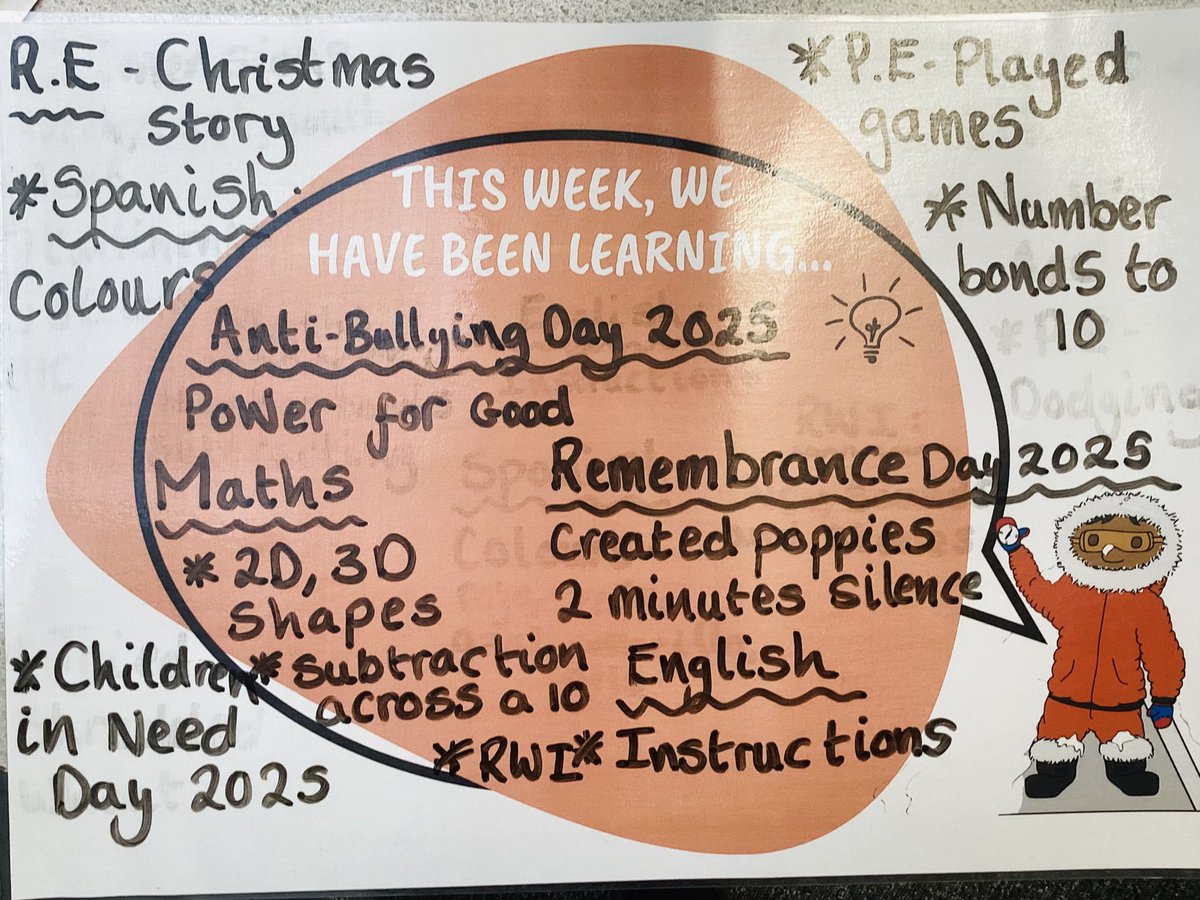 R.E - Christmas
story
*Spanish:
Colours
*P.E- Played
games
*Number
bonds to
10
THIS WEEK, WE
HAVE BEEN LEARNING...
Anti-Bullying Day 2025
Power for Good
Maths
*2D, 3D
shapes
*subtraction
across a 10
Remembrance Day 2025
Created poppies
2 minutes silence
English
*RWI*Instructions
*Children
in Need
Day 2025
Dodging